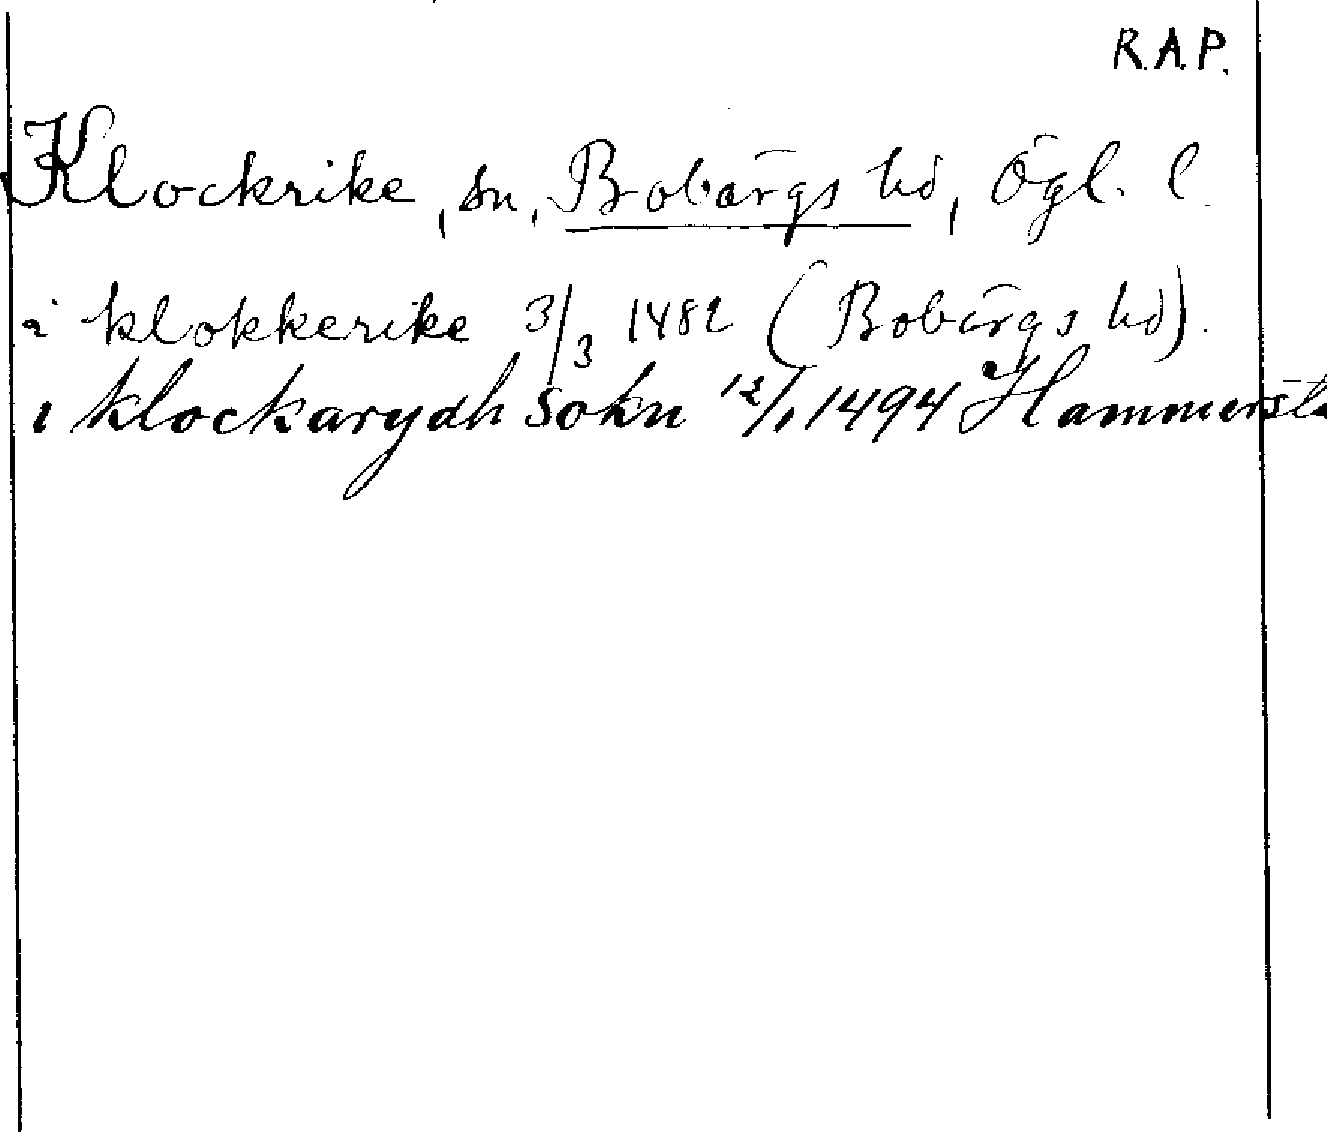 R.A.P.
Klockrike, sn, Bobärgs hd, Ögl. l.
i klokkerike 3/3 1482 (Bobärgs hd).
i klockarydh sokn 12/1 1494 Hammersta